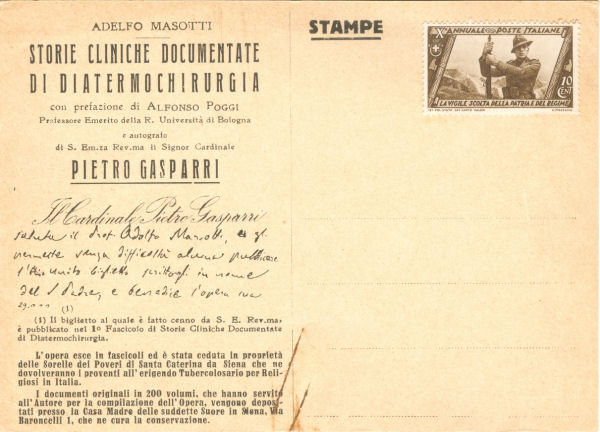 ADELFO MASOTTI
STORIE CLINICHE DOCUMENTATE
DI DIATERMOCHIRURGIA
con prefazione di ALFONSO POGGI
Professore Emerito della R. Università di Bologna
e autografo
di S. Em.za Rev.ma il Signor Cardinale
PIETRO GASPARRI
Il Cardinale Pietro Gasparri
saluta il prof. Adolfo Masotti, e gli
permette senza difficoltà alcuna pubblicare
biglietto scrittogli in nome
del S. Padre, e benedice l'opera sua
(1)
(1) Il biglietto al quale è fatto cenno da S. E. Rev.ma,
è pubblicato nel 1º Fascicolo di Storie Cliniche Documentate
di Diatermochirurgia.
L'opera esce in fascicoli ed è stata ceduta in proprietà
delle Sorelle dei Poveri di Santa Caterina da Siena che ne
devolveranno i proventi all'erigendo Tubercolosario per Reli-
giosi in Italia.
I documenti originali in 200 volumi, che hanno servito
all'Autore per la compilazione dell'Opera, vengono deposi-
tati presso la Casa Madre delle suddette Suore in Siena, Via
Baroncelli 1, che ne cura la conservazione.
STAMPE
Xº ANNUALE POSTE ITALIANE
10
CENT
LA VIGILE SCOLTA DELLA PATRIA E DEL REGIME